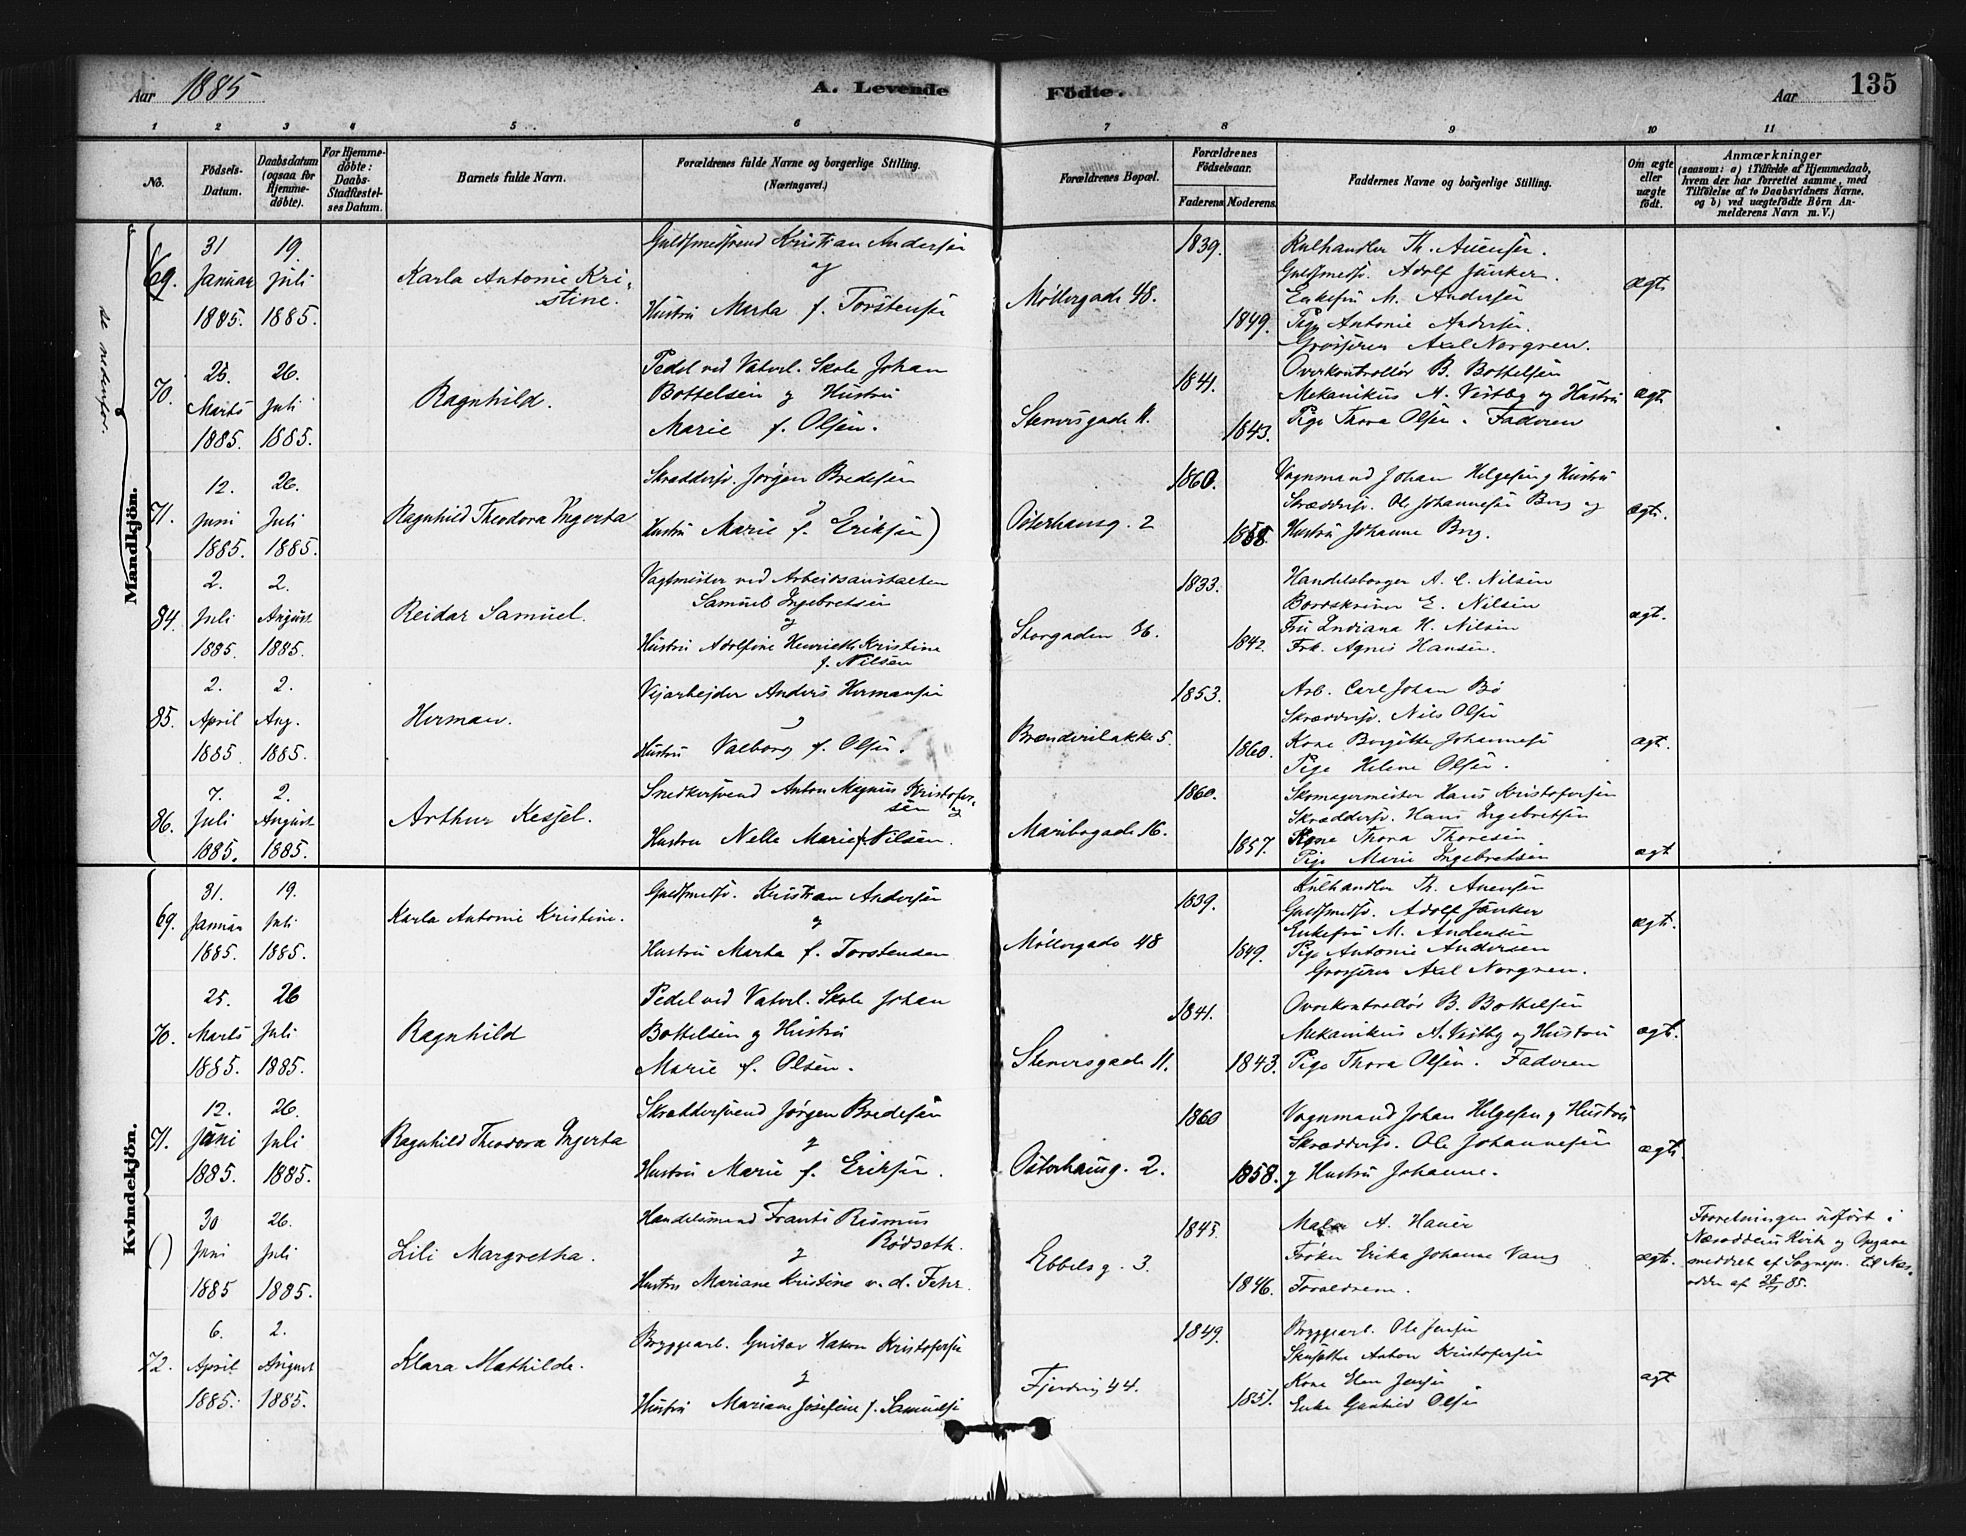 Aar 1885
A. Levende Födte.
Aar
135
1 2 3 4 5 6 7 8 9 10 11
No.
Födsels-Datum.
Daabsdatum (ogsaa for Hjemme-döbte).
For Hjemme-döbte: Daabs-Stadfæstel-ses Datum.
Barnets fulde Navn.
Forældrenes fulde Navne og borgerlige Stilling. (Næringsvei.)
Forældrenes Bopæl.
Forældrenes Födselsaar.
Faderens. Moderens.
Faddernes Navne og borgerlige Stilling.
Om ægte eller uægte födt.
Anmærkninger
(saasom: a) i Tilfælde af Hjemmedaab, hvem der har forrettet samme, med Tilföielse af to Daabsvidners Navne, og b) ved uægtefödte Börn An-melderens Navn m. V.)
Mandkjön.
se nedenfor.
69.
31 Januar 1885.
19. Juli 1885.
Karla Antonie Kri-
stine.
Guldsmedsvend Kristian Andersen
og
Hustru Marta f. Torstensen
Møllergade 48.
1839.
1849.
Kulhandler Th. Auensen.
Guldsmedsv. Adolf Junker.
Enkefru M. Andersen
Pige Antonie Andersen.
Grosserer Axel Norgren.
ægte
70.
25. Marts 1885.
26. Juli 1885.
Ragnhild.
Pedel ved Vaterl. Skole Johan
Bottelsen og Hustru
Marie f. Olsen.
Stenersgade 11.
1841.
1843.
Overkontrollør B. Bottelsen
Mekanikus A. Vestby og Hustru
Pige Thora Olsen. Faderen
ægte
71.
12. Juni 1885.
26. Juli 1885.
Ragnhild Theodora Ingerta
Skræddersv. Jørgen Bredesen
og
Hustru Marie f. Eriksen)
Osterhausg. 2
1860.
1858.
Vognmand Johan Helgesen og Hustru
Skræddersv. Ole Johannesen Berg og
Hustru Johanne Berg.
ægte.
84.
2. Juli 1885.
2. August 1885.
Reidar Samuel.
Vagtmester ved Arbeidsanstalten
Samuel Ingebretsen
og
Hustru Adolfine Henriette Kristine
f. Nilsen
Storgaden 36.
1833.
1842.
Handelsborger A. C. Nilsen
Bordskriver E. Nilsen
Fru Indiana H. Nilsen
Frk. Agnes Hansen.
ægt.
85.
2. April 1885
2. Aug. 1885.
Herman.
Veiarbejder Anders Hermansen
og
Hustru Valborg f. Olsen.
Brænderiløkke 5.
1853.
1860.
Arb. Carl Johan Bö
Skræddersv. Nils Olsen
Kone Birgitte Johannesen
Pige Helene Olsen.
ægt.
86.
7. Juli 1885.
2. August 1885.
Arthur Kessel.
Snedkersvend Anton Magnus Kristofer-
sen og
Hustru Nelle Marie f. Nilsen.
Maribogade 16.
1860.
1857.
Skomagermester Hans Kristofersen
Skræddersv. Hans Ingebretsen
Kone Thora Thoresen
Pige Marie Ingebretsen
ægt
Kvindekjön.
69.
31. Januar 1885.
19. Juli 1885.
Karla Antonie Kristine.
Guldsmedsv. Kristian Andersen
og
Hustru Marta f. Torstensen
Møllergade 48
1839.
1849.
Kulhandler Th. Auensen
Guldsmedsv. Adolf Junker
Enkefru M. Andersen
Pige Antonie Andersen
Grosserer Axel Norgren.
ægte
70.
25. Marts 1885.
26 Juli 1885.
Ragnhild
Pedel ved Vaterl. Skole Johan
Bottelsen og Hustru
Marie f. Olsen.
Stenersgade 11.
1841.
1843.
Overkontrollør B. Bottelsen
Mekanikus A. Vestby og Hustru
Pige Thora Olsen. Faderen
ægt.
71.
12. Juni 1885.
26. Juli 1885.
Ragnhild Theodora Ingerta
Skræddersvend Jørgen Bredesen
og
Hustru Marie f. Eriksen.
Osterhausg. 2.
1860
1858.
Vognmand Johan Helgesen og Hustru
Skræddersv. Ole Johannesen
og Hustru Johanne.
ægte
()
30 Juni 1885
26. Juli 1885.
Lili Margretha.
Handelsmand Frants Rismus
Rödseth.
og
Hustru Mariane Kristine v. d. Fehr.
Ebbelsg. 3.
1845.
1846.
Maler A. Hauer
Frøken Erika Johanne Vang
Forældrene.
ægte.
Forretningen udført i
Næsoddens Kirke og Opgave
meddelt af Sognepr. til Næs-
odden af 28/7 85.
72.
6. April 1885.
2. August 1885.
Klara Mathilde.
Bryggearb. Gustav Kristofersen
og
Hustru Mariane Josefine f. Samuelsen
Fjerding 44.
1849.
1851.
Bryggearb. Ole Jensen
Anton Kristofersen
Kone Elen Jensen
Enke Gunhild Olsen
ægt